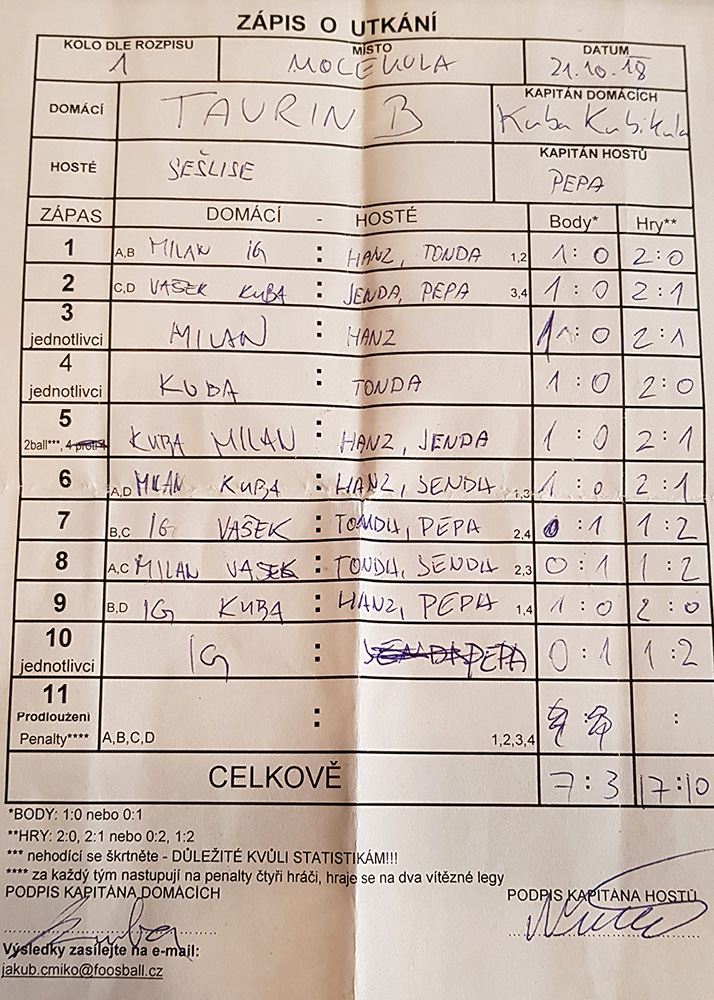 ZÁPIS O UTKÁNÍ
KOLO DLE ROZPISU MÍSTO DATUM
1 MOCEKULA 21.10.18
DOMÁCÍ TAURIN B KAPITÁN DOMÁCÍCH
Kuba Kubikula
HOSTÉ SEŠLISE KAPITÁN HOSTŮ
PEPA
ZÁPAS DOMÁCÍ - HOSTÉ Body* Hry**
1 A,B MILAN IG : HANZ, TONDA 1,2 1:0 2:0
2 C,D VAŠEK KUBA : JENDA, PEPA 3,4 1:0 2:1
3 jednotlivci MILAN : HANZ 1:0 2:1
4 jednotlivci KUBA : TONDA 1:0 2:0
5 2ball***, KUBA MILAN : HANZ, JENDA 1:0 2:1
6 A,D MILAN KUBA : HANZ, JENDA 1,3 1:0 2:1
7 B,C IG VAŠEK : TONDA, PEPA 2,4 0:1 1:2
8 A,C MILAN VAŠEK : TONDA, JENDA 2,3 0:1 1:2
9 B,D IG KUBA : HANZ, PEPA 1,4 1:0 2:0
10 jednotlivci IG : PEPA 0:1 1:2
11
Prodloužení :
Penalty**** A,B,C,D 1,2,3,4 :
CELKOVĚ 7:3 17:10
*BODY: 1:0 nebo 0:1
**HRY: 2:0, 2:1 nebo 0:2, 1:2
*** nehodící se škrtněte - DŮLEŽITÉ KVŮLI STATISTIKÁM!!!
**** za každý tým nastupují na penalty čtyři hráči, hraje se na dva vítězné legy
PODPIS KAPITÁNA DOMÁCÍCH PODPIS KAPITÁNA HOSTŮ
Kuba
Výsledky zasílejte na e-mail:
jakub.cmiko@foosball.cz